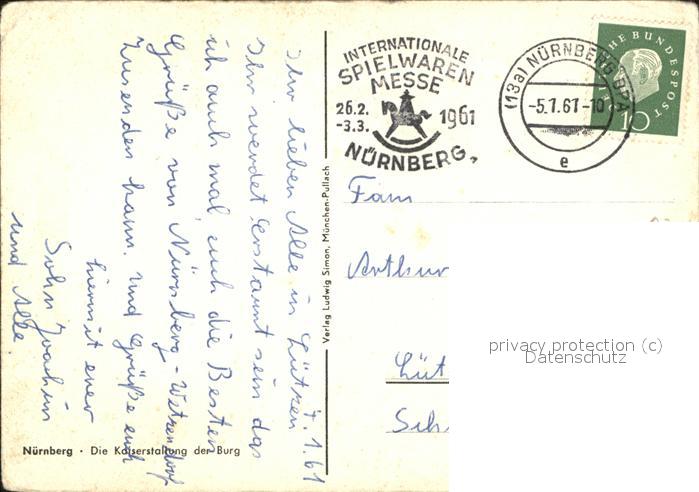 INTERNATIONALE
SPIELWAREN
MESSE
26.2.
-3.3.
1961
NÜRNBERG
(13a) NÜRNBERG BPA
-5.1.61-10
e
HE BUNDESPOST
10
Fam
Arthur
Lüt
Sch
privacy protection (c)
Datenschutz
Verlag Ludwig Simon, München-Pullach
1.61
Ihr lieben Alle in Lützen
Ihr werdet Erstaunt sein das
ich auch mal euch die Besten
Grüße von Nürnberg-Wetzendorf
Zusenden kann. Und Grüße euch
hiermit euer
Sohn Joachim
und Alle.
Nürnberg · Die Kaiserstallung der Burg